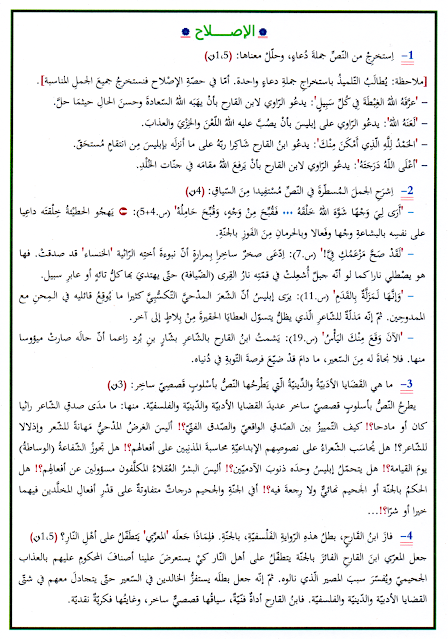 الإصـــلاح
1- اِستخرِجْ من النّصِّ جملةَ دُعاءٍ، وحلّلْ معناها: (1,5ن)
[ملاحظة: يُطالَبُ التّلميذُ باستخراجِ جملةِ دعاءٍ واحدة. أمّا في حصّةِ الإصْلاح فنستخرجُ جميعَ الجملِ المناسبة].
- 'عرَّفَهُ اللهُ الغِبْطَةَ في كُلِّ سَبِيلٍ': يدعُو الرّاوي لابن القارح بأنْ يهَبَه اللهُ السّعادةَ وحسنَ الحالِ حيثمَا حلَّ.
- 'لَعَنَهُ اللهُ': يدعُو الرّاوي على إبليسَ بأنْ يصُبَّ عليه اللهُ اللّعْنَ والخِزْيَ والعذابَ.
- 'الحَمْدُ لِلَّهِ الَّذِي أَمْكَنَ مِنْكَ': يدعُو ابنُ القارح شاكِرا ربَّه على ما أنزلَه بإبليسَ مِن انتقامٍ مُستحَقٍّ.
- 'أَعْلَى اللَّهُ دَرَجَتَهُ': يدعُو الرّاوي لابنِ القارح بأنْ يَرفعَ اللهُ مقامَه في جنّات الخُلْدِ.
2- اِشرَحِ الجملَ المُسطّرةَ في النّصِّ مُسْتفِيدا مِنَ السّيَاقِ: (4ن)
- 'أَرَى لِيَ وَجْهًا شَوَّهَ اللهُ خَلْقَهُ ••• فَقُبِّحَ مِنْ وَجْهٍ، وَقُبِّحَ حَامِلُهُ' (س.4+5): يَهجُو الحطيْئةُ خِلْقتَه داعِيا
على نفسِه بالبشاعةِ وجْها وفَعالا وبالحرمانِ مِنَ الفَوزِ بالجنّةِ.
- 'لَقَدْ صَحَّ مَزْعَمُكِ فِيَّ!' (س.7): اِدّعَى صخرٌ ساخِرا بِمرارةٍ أنّ نبوءةَ أختِه الرّاثيةِ 'الخنساء' قد صدقتْ. فها
هو يصْطلي ناراً كما لو أنّه جبلٌ أُشعِلتْ في قمّتِه نارُ القِرى (الضّيافة) حتّى يهتديَ بها كلُّ تائهٍ أو عابرِ سبيل.
- 'وَإِنَّهَا لَمَزَلَّةٌ بالقَدَمِ' (س.11): يرَى إبليسُ أنّ الشّعرَ المدْحيَّ التّكسُّبيَّ كثيرا ما يُوقِعُ قائليه في المِحنِ مع
الممدوحين. ثمّ إنّه مَذلّةٌ للشّاعرِ الّذي يظلُّ يتسوّل العطايَا الحقيرةَ مِنْ بِلاطٍ إلى آخر.
- 'الآنَ وَقَعَ مِنْكَ اليَأْسُ' (س.19): يَشمتُ ابنُ القارح بالشّاعرِ بشّارِ بنِ بُرد زاعما أنّ حالَه صارتْ ميؤوسا
منها. فلا نَجاةَ له مِنَ السّعير، ما دامَ قدْ ضيّعَ فرصةَ التّوبةِ في دُنياه.
3- ما هي القضايا الأدبيّةُ والدّينيّةُ الَّتي يَطْرحُها النّصُّ بأسْلوبٍ قصصيٍّ ساخِر: (3ن)
يطرحُ النّصُّ بأسلوبٍ قصصيٍّ ساخر عديدَ القضايا الأدبيّةِ والدّينيّةِ والفلسفيّةِ. منها: ما مدَى صدقِ الشّاعر راثيا
كان أو مادحا؟! كيف التّمييزُ بين الصّدقِ الواقعيِّ والصّدقِ الفنّيِّ؟! أليسَ الغرضُ المدْحيُّ مَهانةً للشّعرِ وإذلالا
للشّاعر؟! هل يُحاسَب الشّعراءُ على نصوصِهم الإبداعيّةِ محاسبةَ المذنِبينَ على أفعالِهم؟! هل تجوزُ الشّفاعةُ (الوساطةُ)
يومَ القيامة؟! هل يتحمّل إبليسُ وحدَه ذنوبَ الآدميّين؟! أليسَ البشرُ العُقلاءُ المكلَّفونَ مسؤولين عن أفعالِهم؟! هل
الحكمُ بالجنّة أو الجحيم نهائيٌّ ولا رجعةَ فيه؟! أفي الجنّة والجحيم درجاتٌ متفاوتةٌ على قدْرِ أفعالِ المخلّدين فيهما
خيرا أو شرّا؟!...
4- فازَ ابنُ القارح، بطلُ هذِهِ الرّوايةِ الفلْسفيّةِ، بالجنّة. فلِمَاذَا جعلَه 'المعرّي' يَتطفّلُ على أهْلِ النّار؟ (1,5ن)
جعل المعرّي ابنَ القارح الفائزَ بالجنّة يتطفّلُ على أهل النّار كيْ يستعرضَ علينا أصنافَ المحكومِ عليهم بالعذاب
الجحيميِّ ويُفسّرَ سببَ المصيرِ الّذي نالُوه. ثمّ إنّه جعل بطلَه يستفزُّ الخالدين في السّعير حتّى يتجادلَ معهم في شتّى
القضايا الأدبيّة والدّينيّة والفلسفيّة. فابنُ القارح أداةٌ فنّيّةٌ، سياقُها قصصيٌّ ساخر، وغايتُها فكريّةٌ نقديّة.